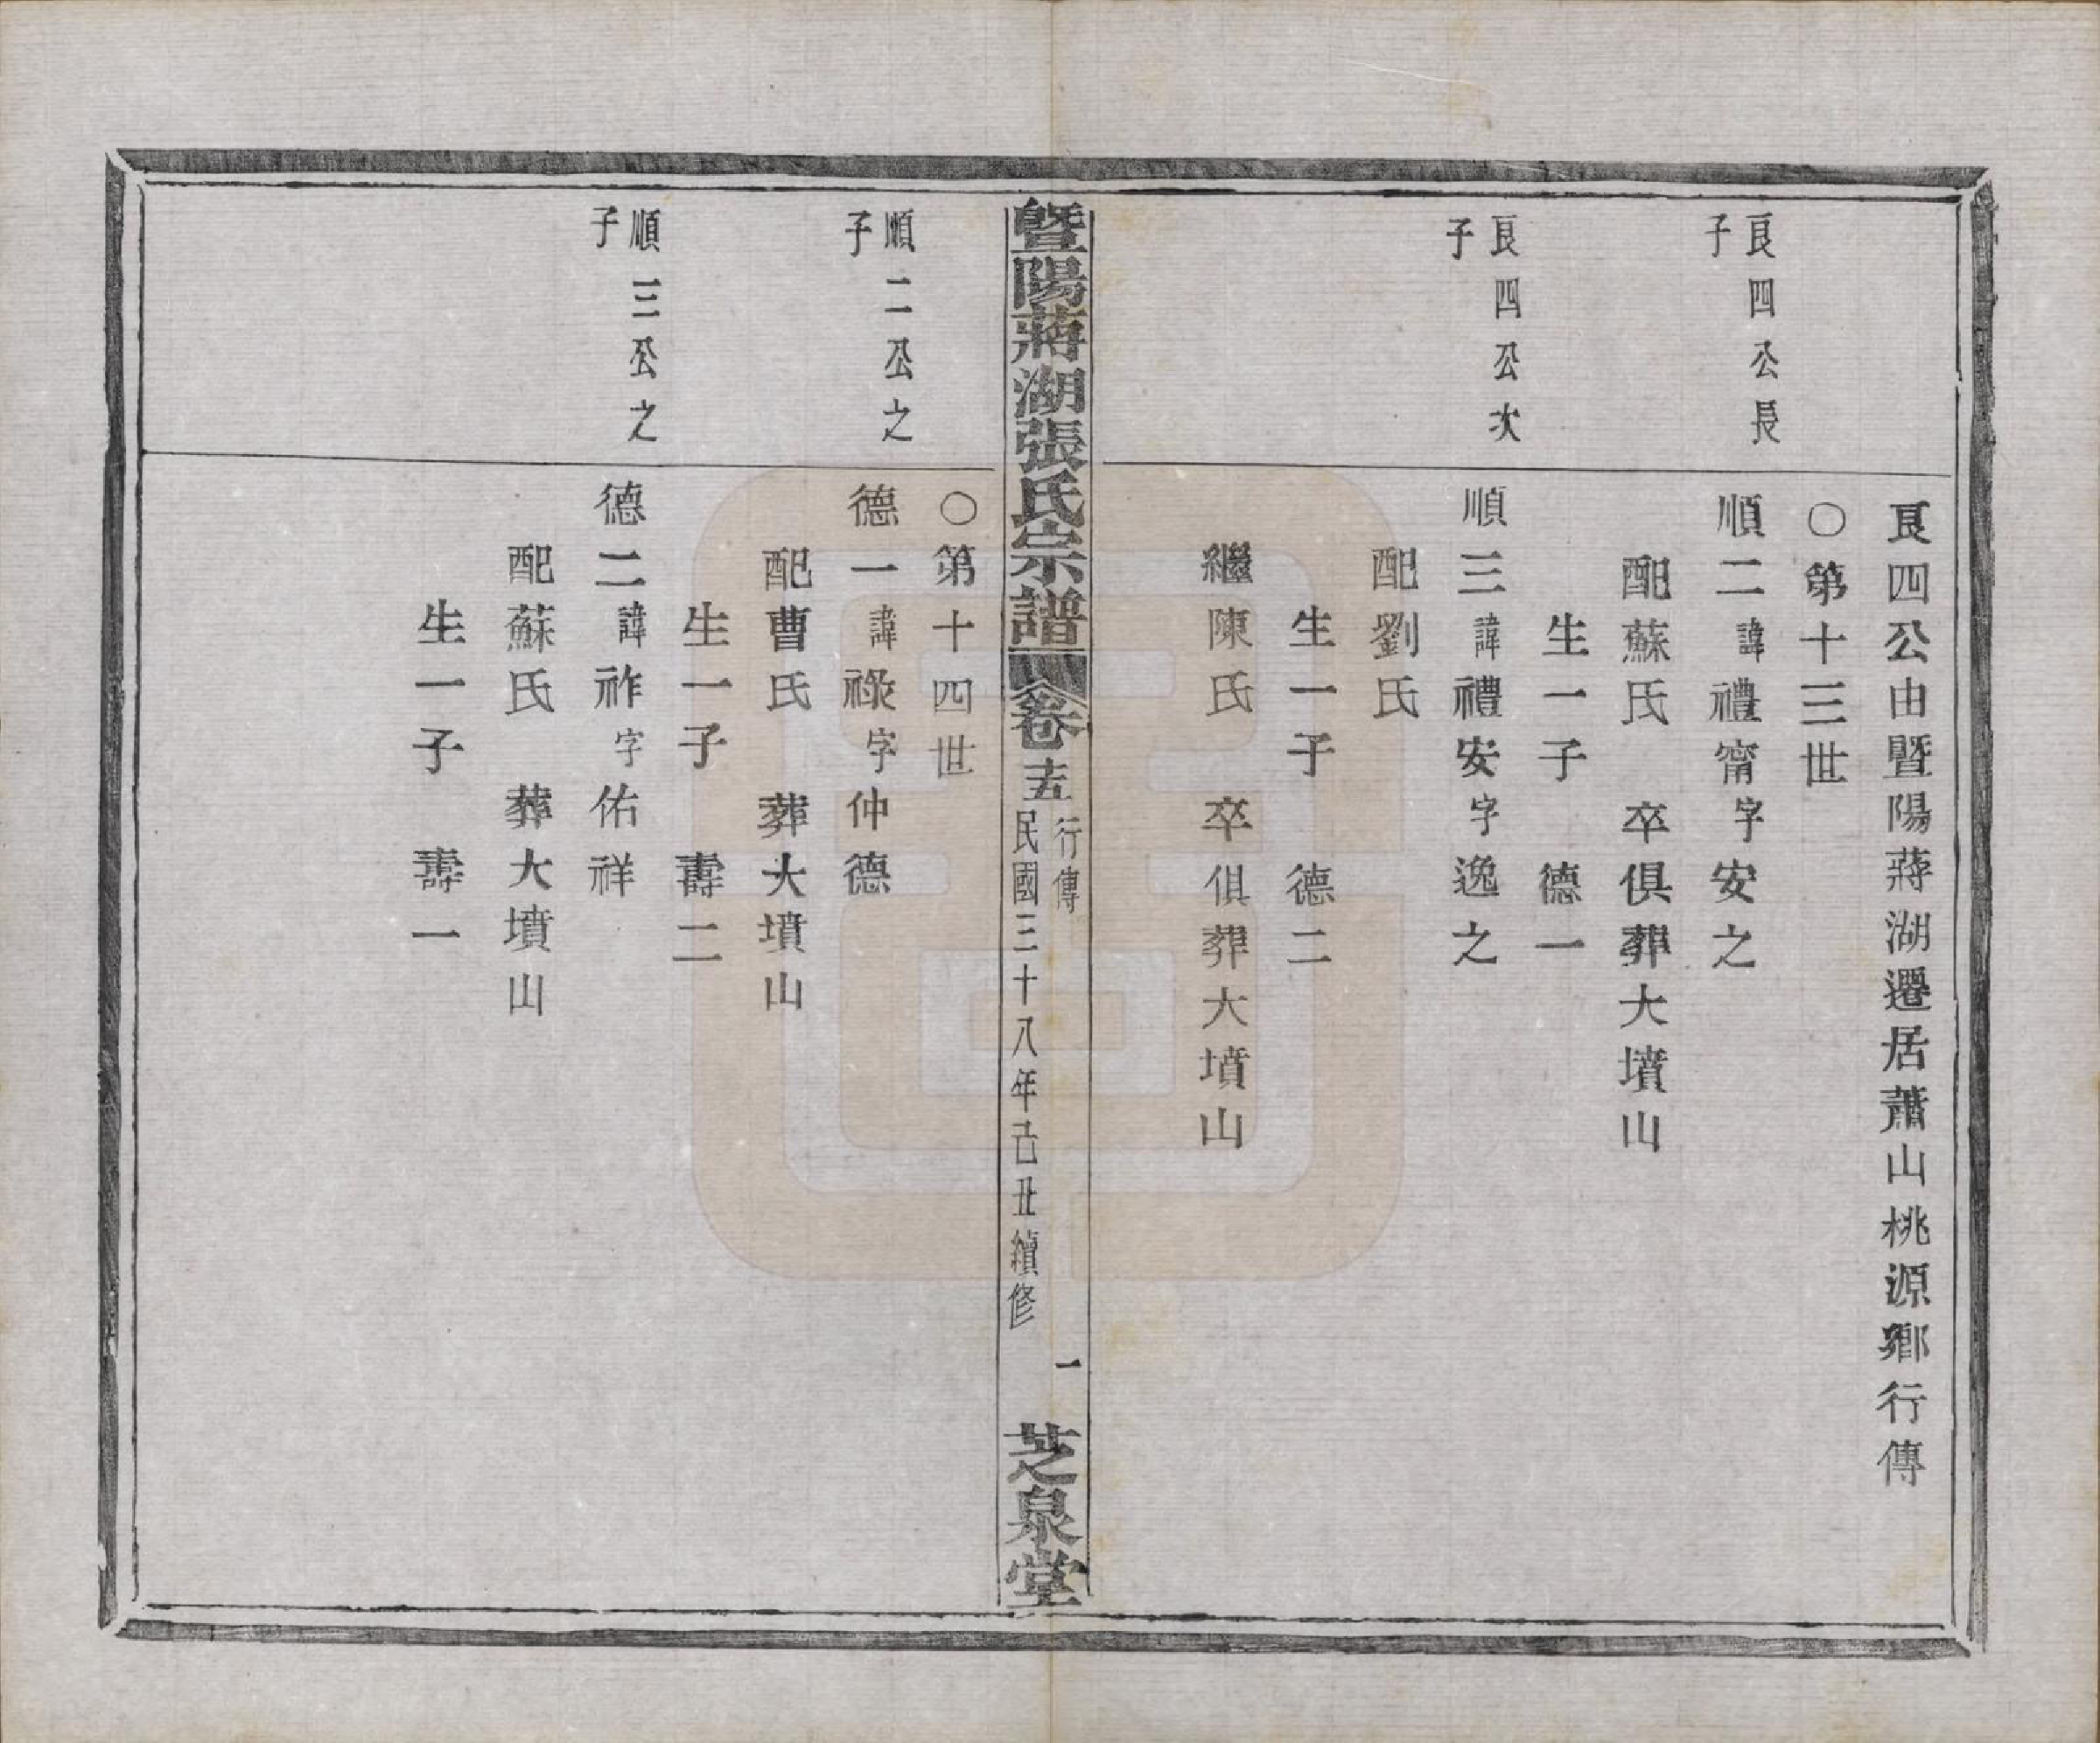 良四公由暨陽蔣湖遷居蕭山桃源鄉行傳
○第十三世
良四公長
子
順二諱禮甯字安之
配蘇氏　卒俱葬大墳山
生一子　德一
良四公次
子
順三諱禮安字逸之
配劉氏
生一子　德二
繼陳氏　卒俱葬大墳山
暨陽蔣湖張氏宗譜　卷十五　行傳　民國三十八年己丑續修　一　芝泉堂
○第十四世
順二公之
子
德一諱祿字仲德
配曹氏　葬大墳山
生一子　壽二
順三公之
子
德二諱祚字佑祥
配蘇氏　葬大墳山
生一子　壽一